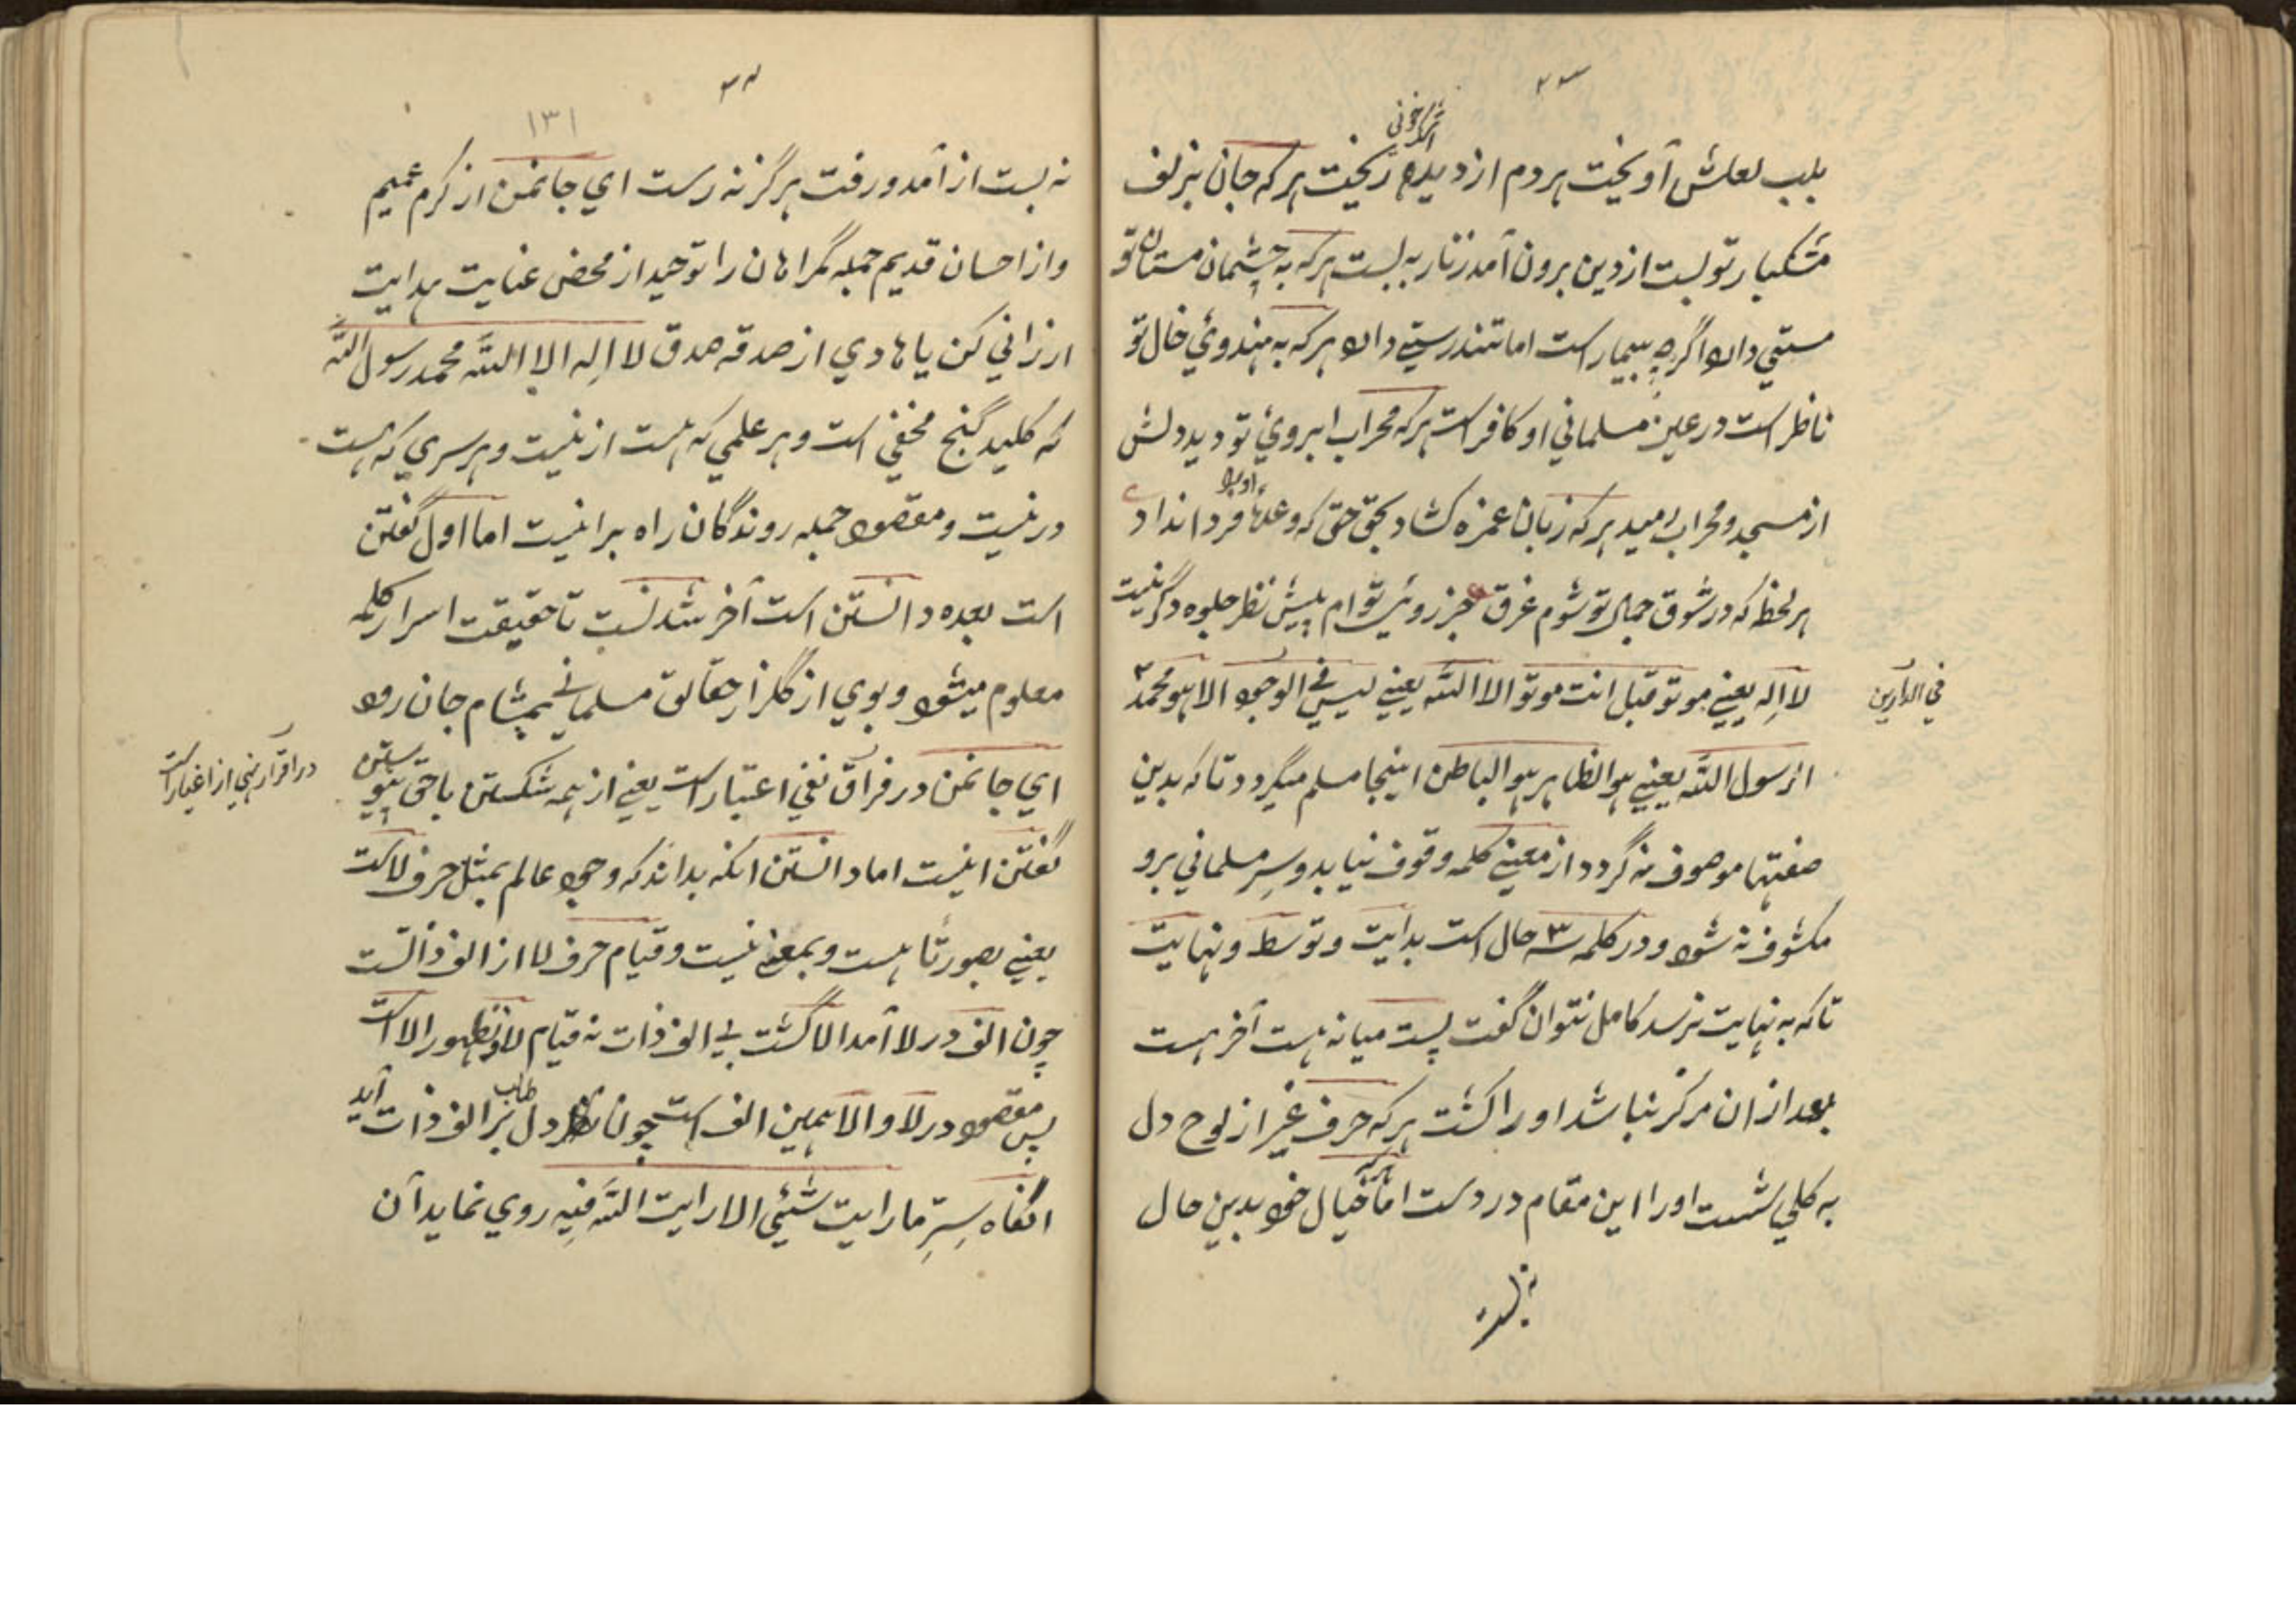 بلب لعلش آویخت هر دم از دیده ریخت هر که جان بزلف
مشکبار تو بست از دین برون آمد زنار به بست هر که به چشمان مستان تو
مستی دارد اگرچه بیمار است اما تندرستی دارد هر که به هندوئ خال تو
ناظر است در عین مسلمانی او کافر است هر که محراب ابروئ تو دید دلش
از مسجد و محراب رمید هر که زبان غمزه کشاد بحق حق که وعدهٔ فردا نداد
هر لحظ که در شوق جمال تو شوم غرق جز روئ تو ام پیش نظر جلوه دگر نیست
لا اله یعنی موتو قبل انت موتو الا الله یعنی لیس فی الوجود الا هو محمد
فی الدارین
ار سول الله یعنی هو الظاهر هو الباطن اینجا مسلم میگردد تا که بدین
صفتها موصوف نه گردد از معنی کلمه وقوف نیابد و سِر مسلمانی برو
مکشوف نه شود و در کلمه سه ۳ حال است بدایت و توسط و نهایت
تا که به نهایت نرسد کامل نتوان گفت پست میانه هست آخر هست
بعد از ان مرکز نباشد او را کشت هر که حرف غیر از لوح دل
به کلی شست او را این مقام در دست اما خیال خود بدین حال
۳۴
۱۳۱
نه بست از آمد و رفت هرگز نه رست ای جانمن از کرم عمیم
و از احسان قدیم جمله گمراهان را توحید از محض عنایت هدایت
ارزانی کن یا هادی از صدقه صدق لا اله الا الله محمد رسول الله
که کلید گنج مخفی است و هر علمی که هست ازینست و هر سری که هست
درینست و مقصود جمله روندگان راه براینست اما اول گفتن
است بعده دانستن است آخر شدنست تا حقیقت اسرار کلمه
معلوم میشود و بوی از گلزار حقائق مسلمانی بمشام جان رود
ای جانمن در فراق نفی اعتبار است یعنی از همه شکستن با حق پیوستن
در اقرار نهی از اغیار است
گفتن اینست اما دانستن انکه بداند که وجود عالم بمثل حرف لا است
یعنی بصورتاً هست و بمعنی نیست و قیام حرف لا از الف ذاتست
چون الف در لا آمد الا گشت بی الف ذات نه قیام لا و نه ظهور الا است
پس مقصود در لا و الا همین الف است چون دل طالب بر الف ذات آید
انگاه سِرِّ ما رایت شیئی الا رایت الله فِیه روی نماید آن